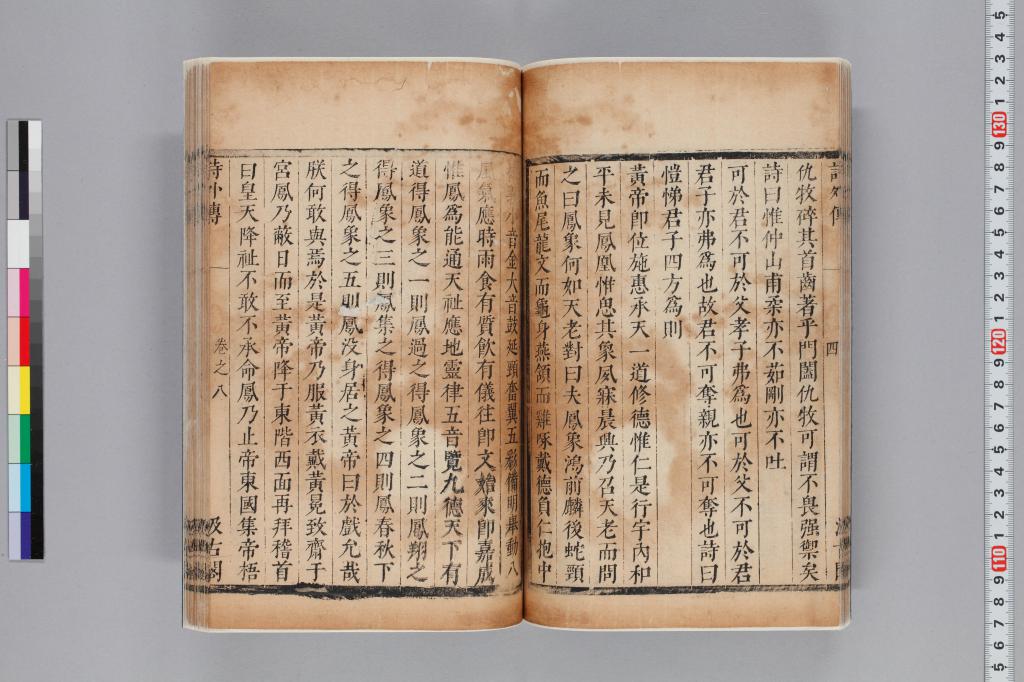 仇牧碎其首齒著乎門闔仇牧可謂不畏强禦矣
詩曰惟仲山甫柔亦不茹剛亦不吐
可於君不可於父孝子弗爲也可於父不可於君
君子亦弗爲也故君不可奪親亦不可奪也詩曰
愷悌君子四方爲則
黃帝卽位施惠承天一道修德惟仁是行宇內和
平未見鳳凰惟思其象夙寐晨興乃召天老而問
之曰鳳象何如天老對曰夫鳳象鴻前麟後蛇頸
而魚尾龍文而龜身燕頷而雞啄戴德負仁抱中
音金大音鼓延頸奮翼五彩備明舉動八
風氣應時雨食有質飲有儀往卽文始來卽嘉成
惟鳳爲能通天祉應地靈律五音覽九德天下有
道得鳳象之一則鳳過之得鳳象之二則鳳翔之
得鳳象之三則鳳集之得鳳象之四則鳳春秋下
之得鳳象之五則鳳没身居之黃帝曰於戲允哉
朕何敢與焉於是黃帝乃服黃衣戴黃冕致齋于
宮鳳乃蔽日而至黃帝降于東階西面再拜稽首
曰皇天降祉不敢不承命鳳乃止帝東國集帝梧
卷之八
四